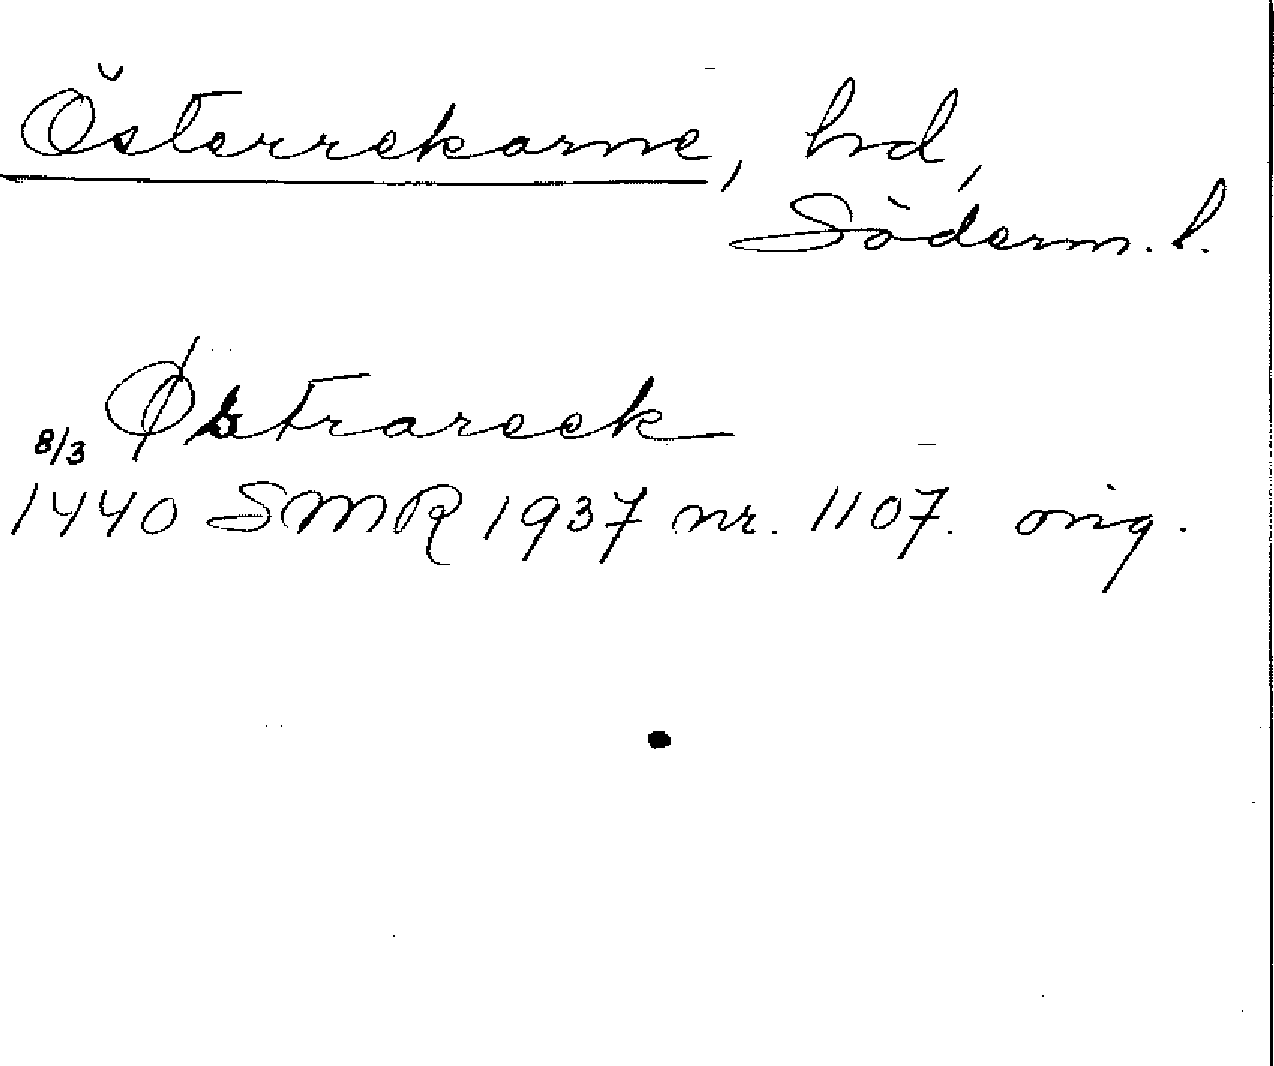 Österrekarne, hd,
Söderm. l.
Østrareek
8/3
1440 SMR 1937 nr. 1107. orig.